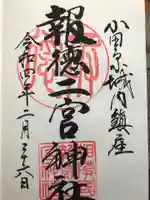 小田原城内鎮座
報徳二宮神社
令和四年二月二十六日